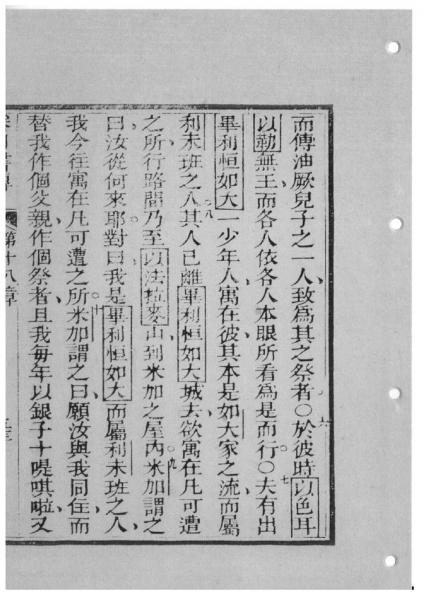 而傅油厥兒子之一人致爲其之祭者○於彼時以色耳
以勒無王而各人依各人本眼所看爲是而行○夫有出
畢利恒如大一少年人寓在彼其本是如大家之流而屬
利未班之人其人已離畢利恒如大城去欲寓在凡可遭
之所行路間乃至以法拉麥山到米加之屋內米加謂之
曰汝從何來耶對曰我是畢利恒如大而屬利未班之人
我今往寓在凡可遭之所米加謂之曰願汝與我同住而
替我作個父親作個祭者且我每年以銀子十唭啦又
第十八章